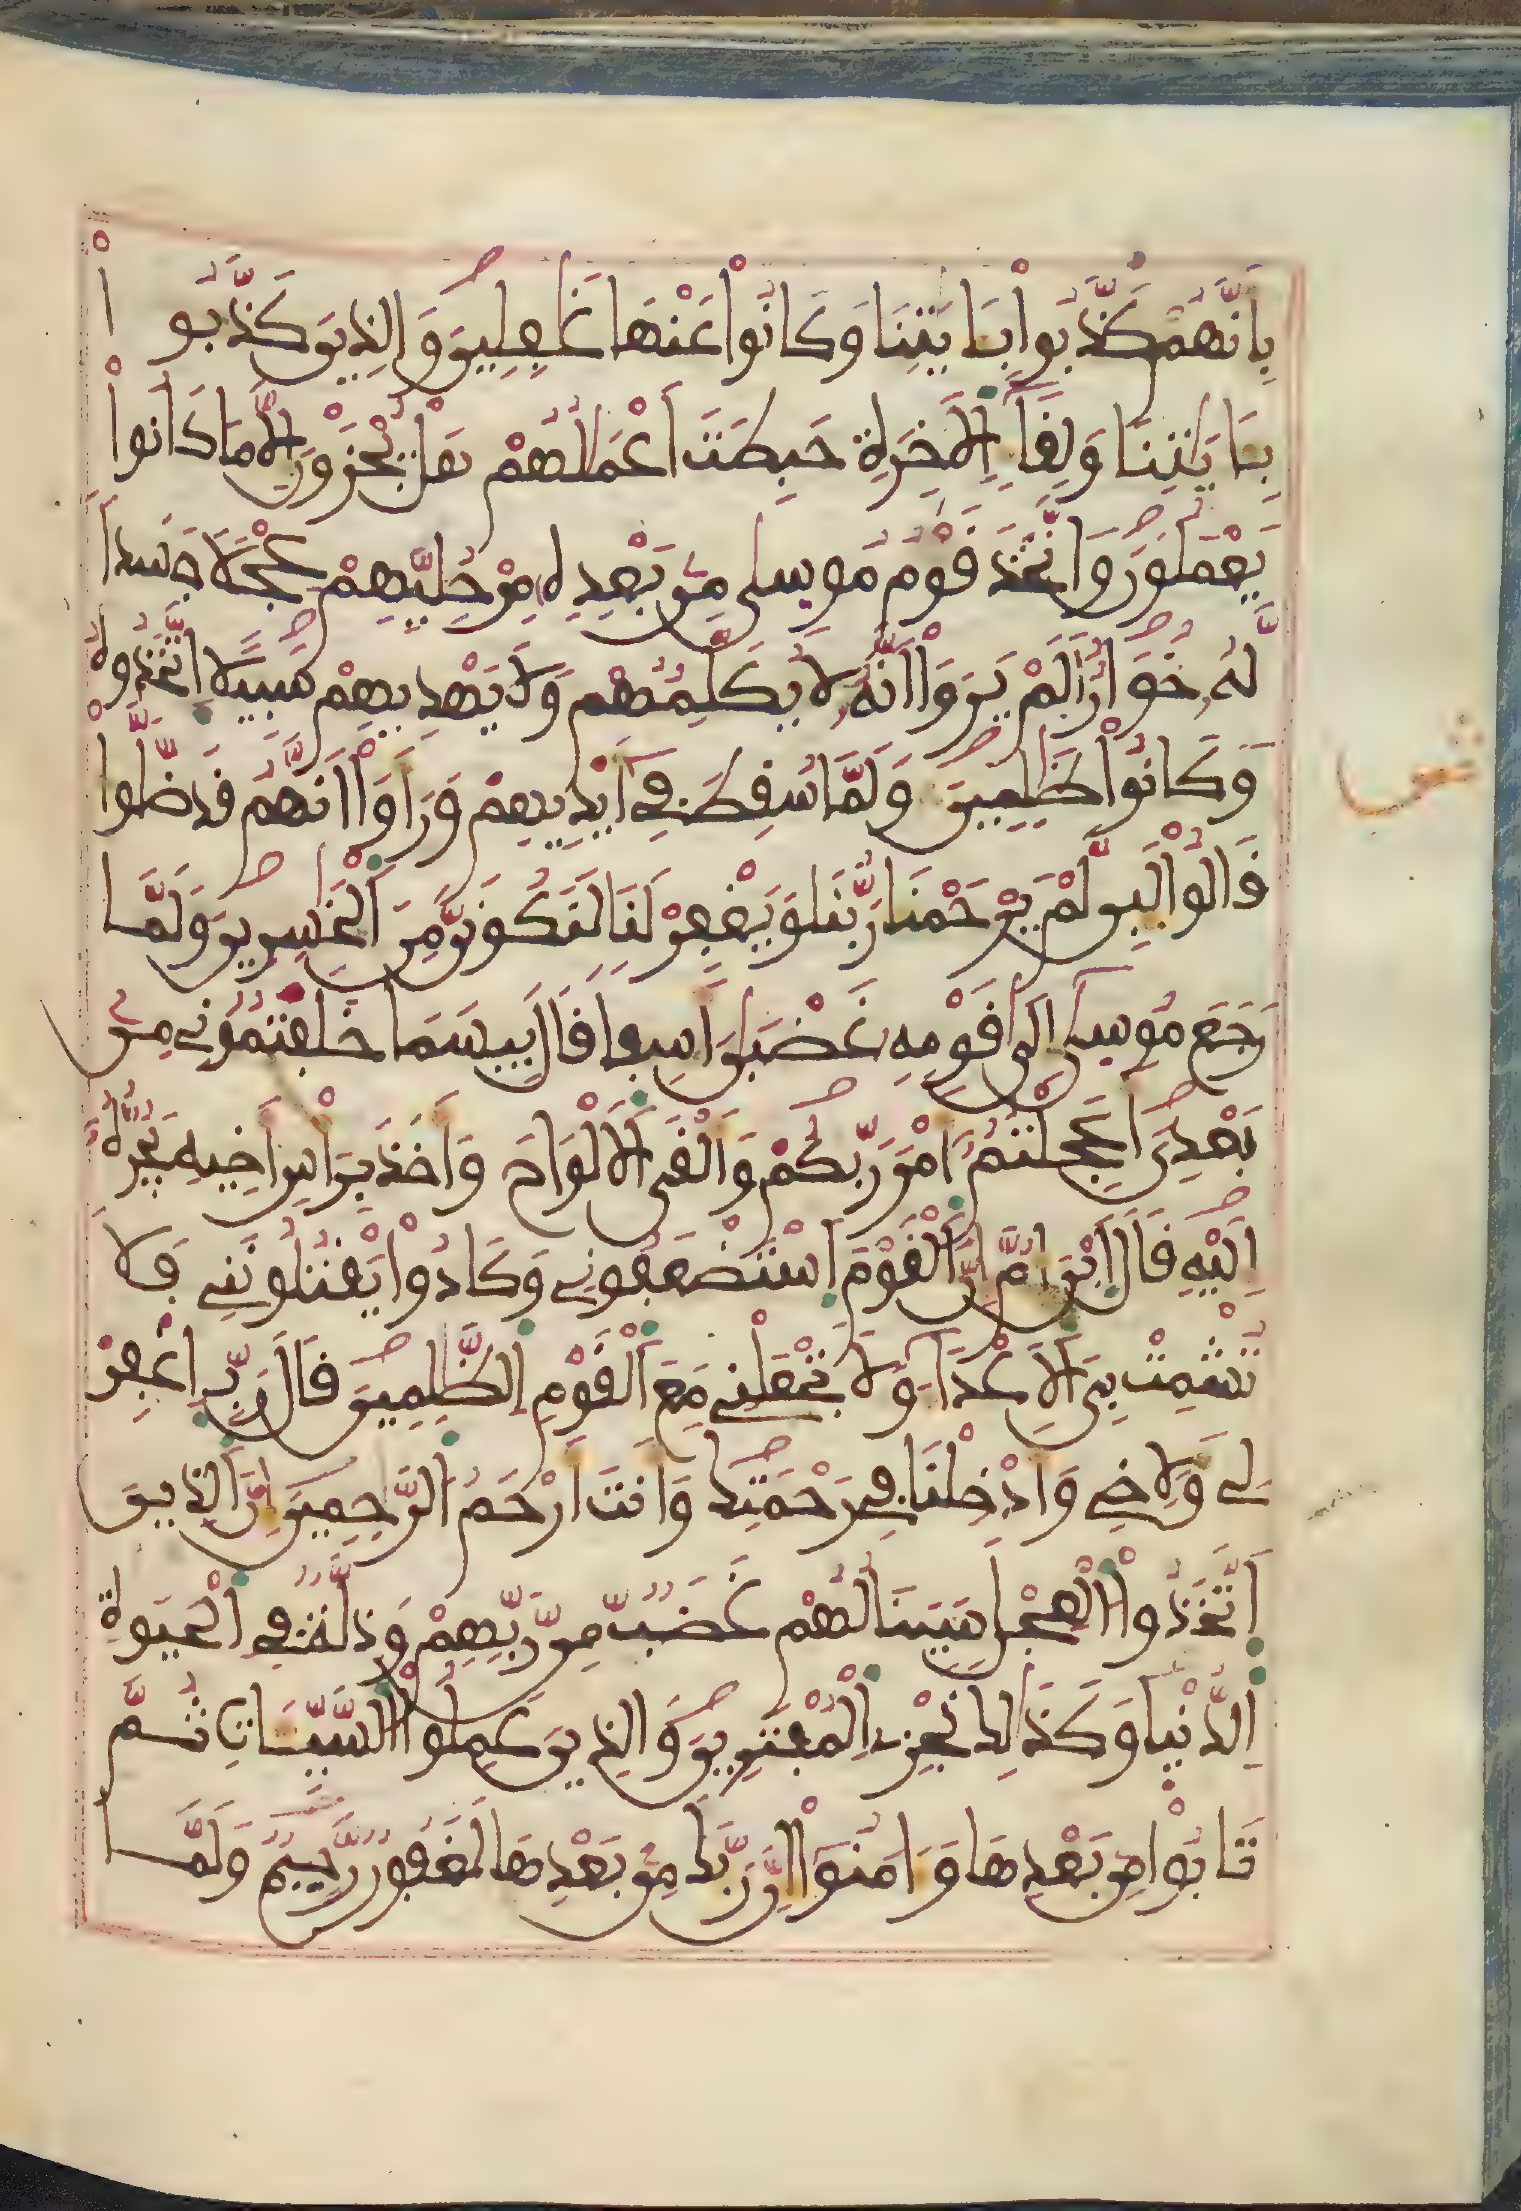 بِأَنَّهُمْ كَذَّبُواْ بِـَٔايَٰتِنَا وَكَانُواْ عَنْهَا غَٰفِلِينَ وَالذِينَ كَذَّبُو اْ
بِـَٔايَٰتِنَا وَلِقَآءِ اِ۬لَاخِرَةِ حَبِطَتَ اَعْمَٰلُهُمْ هَلْ يُجْزَوْنَ إِلَّا مَا كَانُواْ
يَعْمَلُونَ وَاتَّخَذَ قَوْمُ مُوسىٰ مِنۢ بَعْدِهِۦ مِنْ حُلِيِّهِمْ عِجْلًا جَسَداً
لَّهُۥ خُوَارٌ اَلَمْ يَرَوَاْ اَنَّهُۥ لَا يُكَلِّمُهُمْ وَلَا يَهْدِيهِمْ سَبِيلًا اِتَّخَذُوهُ
وَكَانُواْ ظَٰلِمِينَ وَلَمَّا سُقِطَ فِے أَيْدِيهِمْ وَرَأَوَاْ اَنَّهُمْ قَد ضَّلُّواْ
قَالُواْ لَئِن لَّمْ يَرْحَمْنَا رَبُّنَا وَيَغْفِرْ لَنَا لَنَكُونَنَّ مِنَ اَ۬لْخَٰسِرِينَ وَلَمَّا
رَجَعَ مُوسىٰٓ إِلَىٰ قَوْمِهِۦ غَضْبَٰنَ أَسِفاً قَالَ بِيسَمَا خَلَفْتُمُونِے مِنۢ
بَعْدِيَ أَعَجِلْتُمُۥٓ أَمْرَ رَبِّكُمْ وَأَلْقَى اَ۬لَالْوَاحَ وَأَخَذَ بِرَأْسِ أَخِيهِ يَجُرُّهُۥٓ
إِلَيْهِ قَالَ اَبْنَ أُمَّ إِنَّ اَ۬لْقَوْمَ اَ۪سْتَضْعَفُونِے وَكَادُواْ يَقْتُلُونَنِے فَلَا
تُشْمِتْ بِيَ اَ۬لَاعْدَآءَ وَلَا تَجْعَلْنِے مَعَ اَ۬لْقَوْمِ اِ۬لظَّٰلِمِينَ قَالَ رَبِّ اِ۪غْفِرْ
لِے وَلِأَخِے وَأَدْخِلْنَا فِے رَحْمَتِكَ وَأَنتَ أَرْحَمُ اُ۬لرَّٰحِمِينَ إِنَّ اَ۬لذِينَ
اَ۪تَّخَذُواْ اُ۬لْعِجْلَ سَيَنَالُهُمْ غَضَبٌ مِّن رَّبِّهِمْ وَذِلَّةٌ فِے اِ۬لْحَيَوٰةِ
اِ۬لدُّنْيَا وَكَذَٰلِكَ نَجْزِے اِ۬لْمُفْتَرِينَ وَالذِينَ عَمِلُواْ اُ۬لسَّيِّـَٔاتِ ثُمَّ
تَابُواْ مِنۢ بَعْدِهَا وَءَامَنُوٓاْ إِنَّ رَبَّكَ مِنۢ بَعْدِهَا لَغَفُورٌ رَّحِيمٌ وَلَمَّا